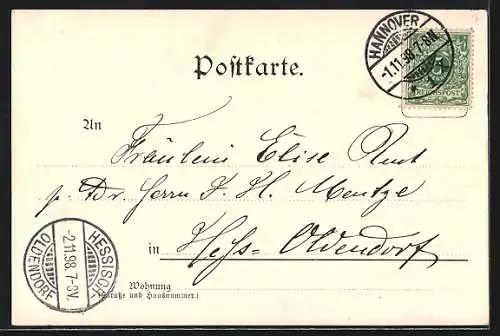 Postkarte.
HANNOVER
-1.11.98.7-8N.
*
5
REICHSPOST
An
Fräulein Elise
p. Adr. Herrn F. H. Mentze
in Hess-Oldendorf
HESSISCH-OLDENDORF
-2.11.98.7-8V.
Wohnung
(Straße und Hausnummer.)